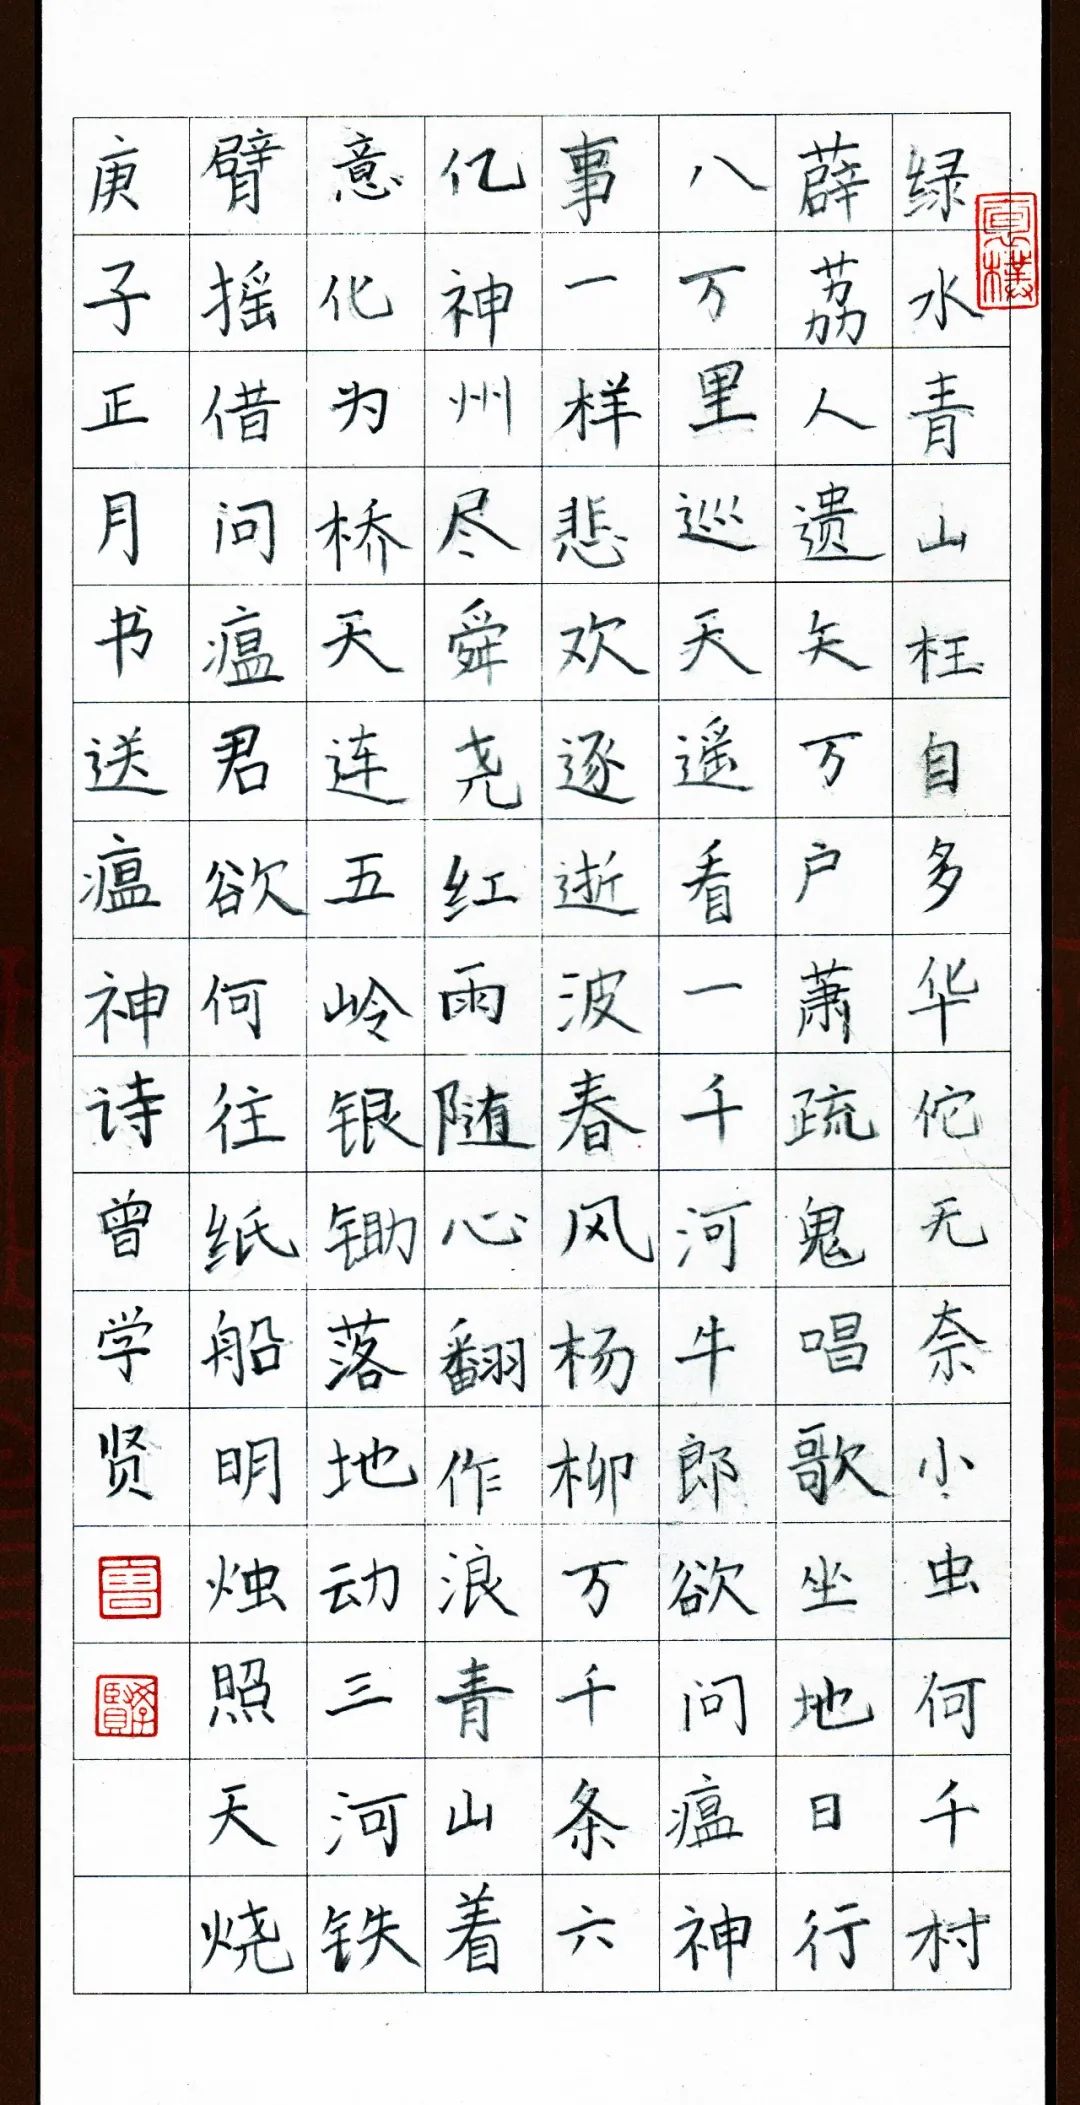 绿水青山枉自多华佗无奈小虫何千村
薜荔人遗矢万户萧疏鬼唱歌坐地日行
八万里巡天遥看一千河牛郎欲问瘟神
事一样悲欢逐逝波春风杨柳万千条六
亿神州尽舜尧红雨随心翻作浪青山着
意化为桥天连五岭银锄落地动三河铁
臂摇借问瘟君欲何往纸船明烛照天烧
庚子正月书送瘟神诗曾学贤
曾
學賢